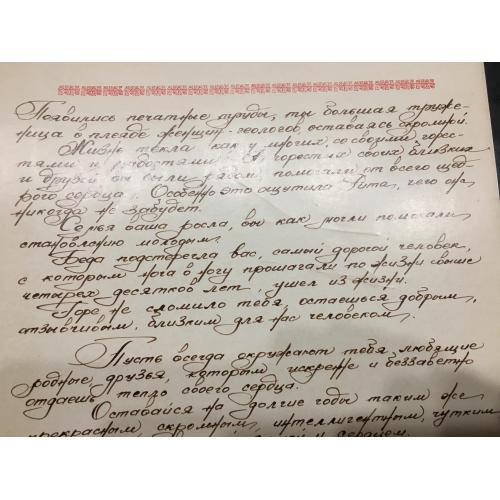 Появились печатные труды, ты большая труже-
ница в плеяде женщин-геологов, оставаясь скромной.
Жизнь текла как у многих, со своими горес-
тями и радостями. В горестях своих близких
и друзей вы были рядом, помогали от всего щед-
рого сердца. Особенно это ощутила Рита, чего он
никогда не забудет.
Семья ваша росла, вы как могли помогали
становлению молодым.
Беда подстерегла вас, самый дорогой человек,
с которым нога в ногу прошагали по жизни свыше
четырех десятков лет, ушел из жизни.
Горе не сломило тебя, остаешься добрым,
отзывчивым, близким для нас человеком.
Пусть всегда окружают тебя любящие
родные, друзья, которым искренне и беззаветно
отдаешь тепло своего сердца.
Оставайся на долгие годы таким же
прекрасным, скромным, интеллигентным, чутким
и сердцем.